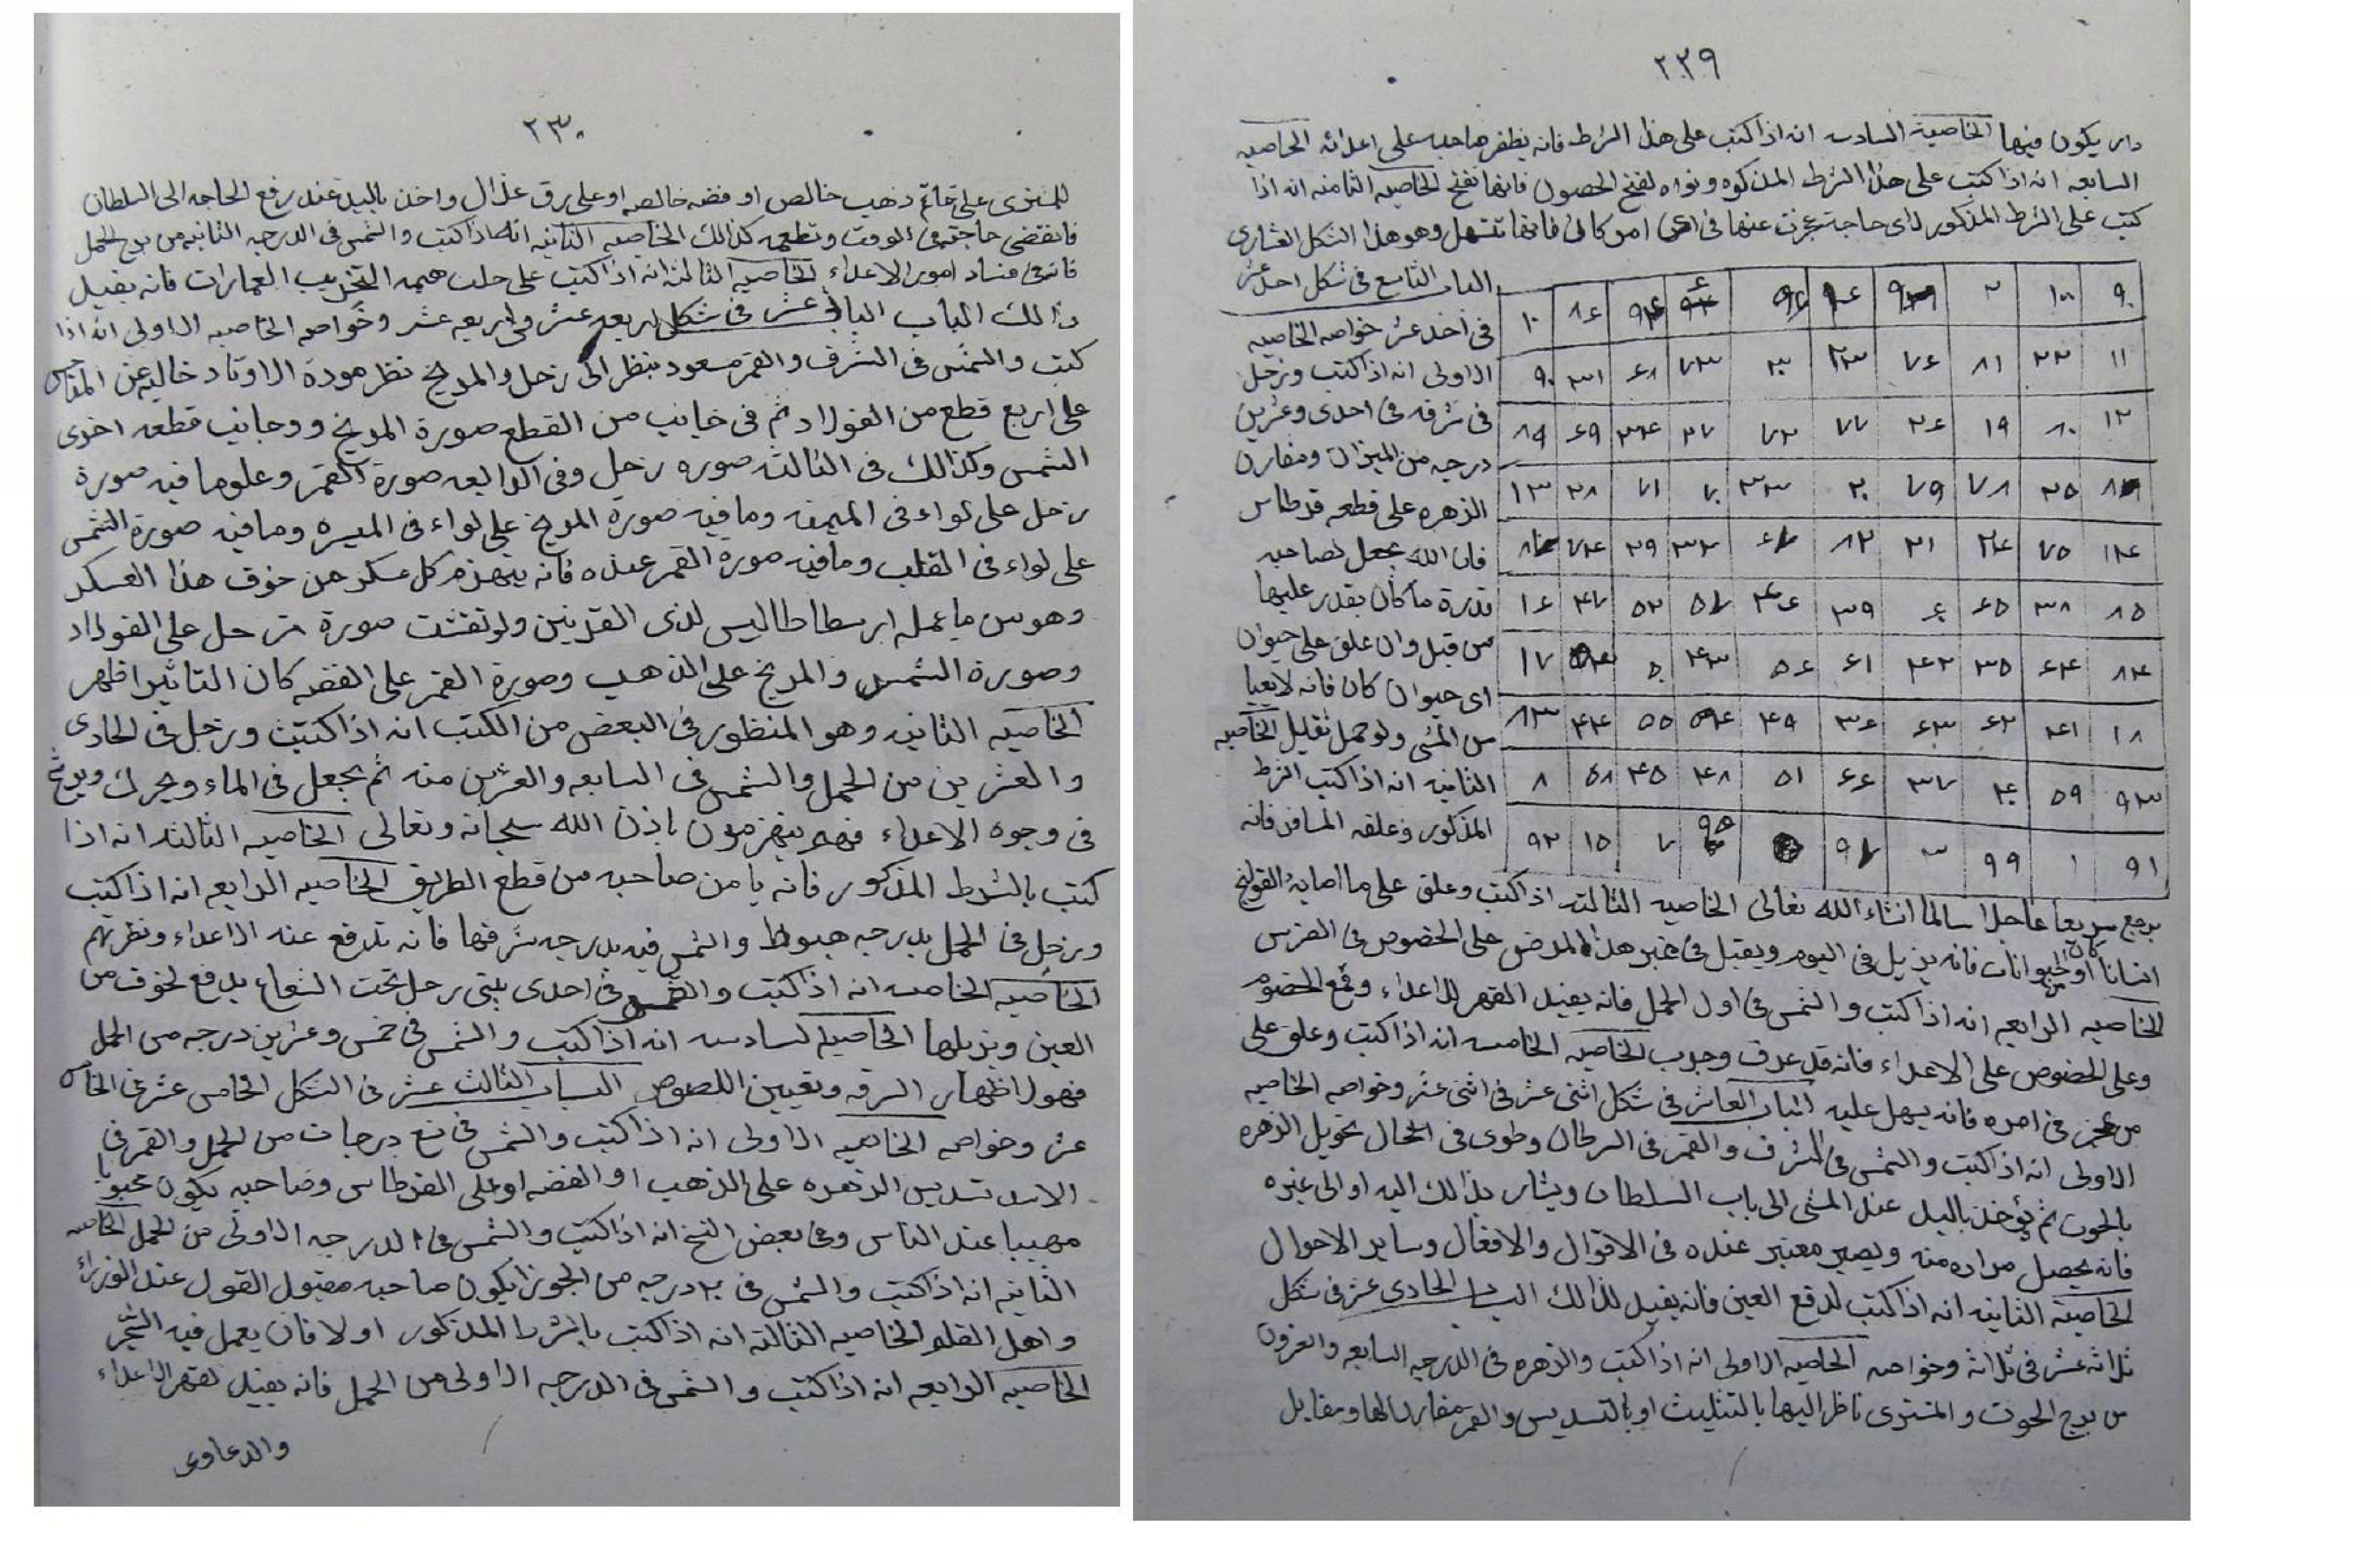 ٢٢٩
دار يكون فيها الخاصية السادسه انه اذا كتب على هذا الشرط فانه يظفر صاحبه على اعدائه الخاصيه
السابعه انه اذا كتب على هذا الشرط المذكوره ونواه لفتح الحصون فانها تفتح الخاصيه الثامنه انه اذا
كتب على الشرط المذكور لاى حاجة عجزت عنها فى اى امر كان فانها تتسهل وهو هذا الشكل العشارى
الباب التاسع فى شكل احد عشر
فى احد عشر خواصه الخاصيه
الاولى انه اذا كتب وزحل
فى شرفه فى احدى وعشرين
درجه من الميزان ومقارن
الزهره على قطعه قرطاس
فان الله يجعل لصاحبه
قدرة ما كان يقدر عليها
من قبل وان علق على حيوان
اى حيوان كان فانه لا يعيا
من المشى ولو حمل ثقيل الخاصيه
الثانيه انه اذا كتب الشرط
المذكور وعلقه المسافر فانه
٩٠ ١٠٠ ٢ ١٤ ١٠
١١ ٢٢ ٨١ ٧٦ ٢٣ ٣٠ ٧٣ ٦٨ ٣١ ٩٠
١٢ ٨٠ ١٩ ٢٦ ٧٧ ٧٢ ٢٧ ٣٤ ٦٩ ٨٩
٢٥ ٧٨ ٧٩ ٢٠ ٣٣ ٧٠ ٧١ ٢٨ ١٣
١٤ ٧٥ ٢٤ ٢١ ٨٢ ٦٧ ٣٢ ٢٩ ٧٤
٨٥ ٣٨ ٦٥ ٦٠ ٣٩ ٤٦ ٥٧ ٥٢ ٤٧ ١٦
٨٤ ٦٤ ٣٥ ٤٢ ٦١ ٥٦ ٤٣ ٥٠ ١٧
١٨ ٤١ ٦٢ ٦٣ ٣٦ ٤٩ ٥٤ ٥٥ ٤٤ ٨٣
٩٣ ٥٩ ٤٠ ٣٧ ٦٦ ٥١ ٤٨ ٤٥ ٥٨ ٨
٩١ ١ ٩٩ ٣ ٩٧ ٧ ١٥ ٩٢
يرجع سريعا عاجلا سالما انشاء الله تعالى الخاصيه الثالثه اذا كتب وعلق على ما اصابه القولنج
انسانا كان او من الحيوانات فانه يزيل فى اليوم ويقبل فى غير هذا المرض على الخصوص فى الفرس
الخاصيه الرابعه انه اذا كتب والشمس فى اول الحمل فانه يفيد القهر للاعداء وقمع الخصوم
وعلى الخصوص على الاعداء فانه قد عرف وجرب الخاصيه الخامسه انه اذا كتب وعلق على
من عجز فى امره فانه يسهل عليه الباب العاشر فى شكل اثنى عشر فى اثنى عشر وخواصه الخاصيه
الاولى انه اذا كتب والشمس فى الشرف والقمر فى السرطان وطوى فى الحال تحويل الزهره
بالحوت ثم يؤخذ باليد عند المشى الى باب السلطان ويشار بذالك اليه او الى غيره
فانه يحصل مراده منه ويصير معتبر عنده فى الاقوال والافعال وساير الاحوال
الخاصية الثانيه انه اذا كتب لدفع العين فانه يفيد لذالك الباب الحادى عشر فى شكل
ثلاثه عشر فى ثلاثه وخواصه الخاصيه الاولى انه اذا كتب والزهره فى الدرجه السابعه والعشرون
من برج الحوت والمشترى ناظر اليها بالتثليث او بالتسديس والقمر مقارنا لها ومقابل
٢٣٠
للمشترى على خاتم ذهب خالص او فضه خالصه او على رق غزال واخذ باليد عند رفع الحاجه الى السلطان
فانه تقضى حاجته فى الوقت وتطعمه كذالك الخاصيه الثانيه انه اذا كتب والشمس فى الدرجه الثانيه من برج الحمل
فانه فى فساد امور الاعداء الخاصيه الثالثه انه اذا كتب على جلد لتخريب العمارات فانه يفيد
ذالك الباب عشر فى شكل اربعه عشر فى اربعه عشر وخواصه الخاصيه الاولى انه اذا
كتب والشمس فى الشرف والقمر مسعود ينظر الى زحل والمريخ نظر مودة الاوتاد خاليه عن
على اربع قطع من الفولاد ثم فى جانب من القطع صورة المريخ و وجانب قطعه اخرى
الشمس وكذالك فى الثالثه صوره زحل وفى الرابعه صورة القمر وعلو ما فيه صورة
زحل على لواء فى الميمنه وما فيه صورة المريخ على لواء فى الميسره وما فيه صورة الشمس
على لواء فى القلب وما فيه صورة القمر عنده فانه ينهزم كل عسكر من خوف هذا العسكر
وهو من ما عمله ارسطاطاليس لذى القرنين ولو نقشت صورة زحل على الفولاد
وصورة الشمس والمريخ على الذهب وصورة القمر على الفضه كان التاثير اظهر
الخاصيه الثانيه وهو المنظور فى البعض من الكتب انه اذا كتبت وزحل فى الحادى
والعشرين من الحمل والشمس فى السابعه والعشرين منه ثم يجعل فى الماء ويحرك ويرش
فى وجوه الاعداء فهم ينهزمون باذن الله سبحانه وتعالى الخاصيه الثالثه انه اذا
كتب بالشرط المذكور فانه يا من صاحبه من قطع الطريق الخاصيه الرابعه انه اذا كتب
وزحل فى الحمل بدرجه هبوط والشمس فيه بدرجه شرفها فانه تدفع عنه الاعداء ونظرتهم
الخاصيه الخامسه انه اذا كتب والشمس فى احدى بيتى زحل تحت الشعاع يدفع لخوف من
العين ويزيلها الخاصيه السادسه انه اذا كتب والشمس فى خمس وعشرين درجه من الحمل
فهو لاظهار السرقه وتعيين اللصوص الباب الثالث عشر فى الشكل الخامس عشر فى الخامس
عشر وخواصه الخاصيه الاولى انه اذا كتب والشمس فى تسع درجات من الحمل والقمر فى
الاسد تسديس الزهره على الذهب او الفضه او على القرطاس وصاحبه يكون محبوبا
مهيبا عند الناس وفى بعض النسخ انه اذا كتب والشمس فى الدرجه الاولى من الحمل الخاصيه
الثانيه انه اذا كتب والشمس فى ٢٠ درجه من الجوزا يكون صاحبه مقبول القول عند الوزراء
واهل القلم الخاصيه الثالثة انه اذا كتب بالشرط المذكور اولا فان يعمل فيه
الخاصيه الرابعه انه اذا كتب والشمس فى الدرجه الاولى من الحمل فانه يفيد لقهر الاعداء
والدعاوى